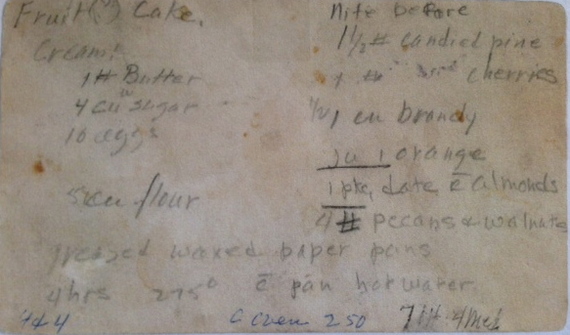 Fruit(?) Cake.
Cream:
1# Butter
4 cu sugar
10 eggs
flour
Nite before
1 1/2 # candied pine
cherries
1 cu brandy
Ju 1 orange
1 pkg, date c̄ almonds
4 # pecans & walnuts
greased waxed paper pans
4 hrs 275° c̄ pan hot water
oven 250